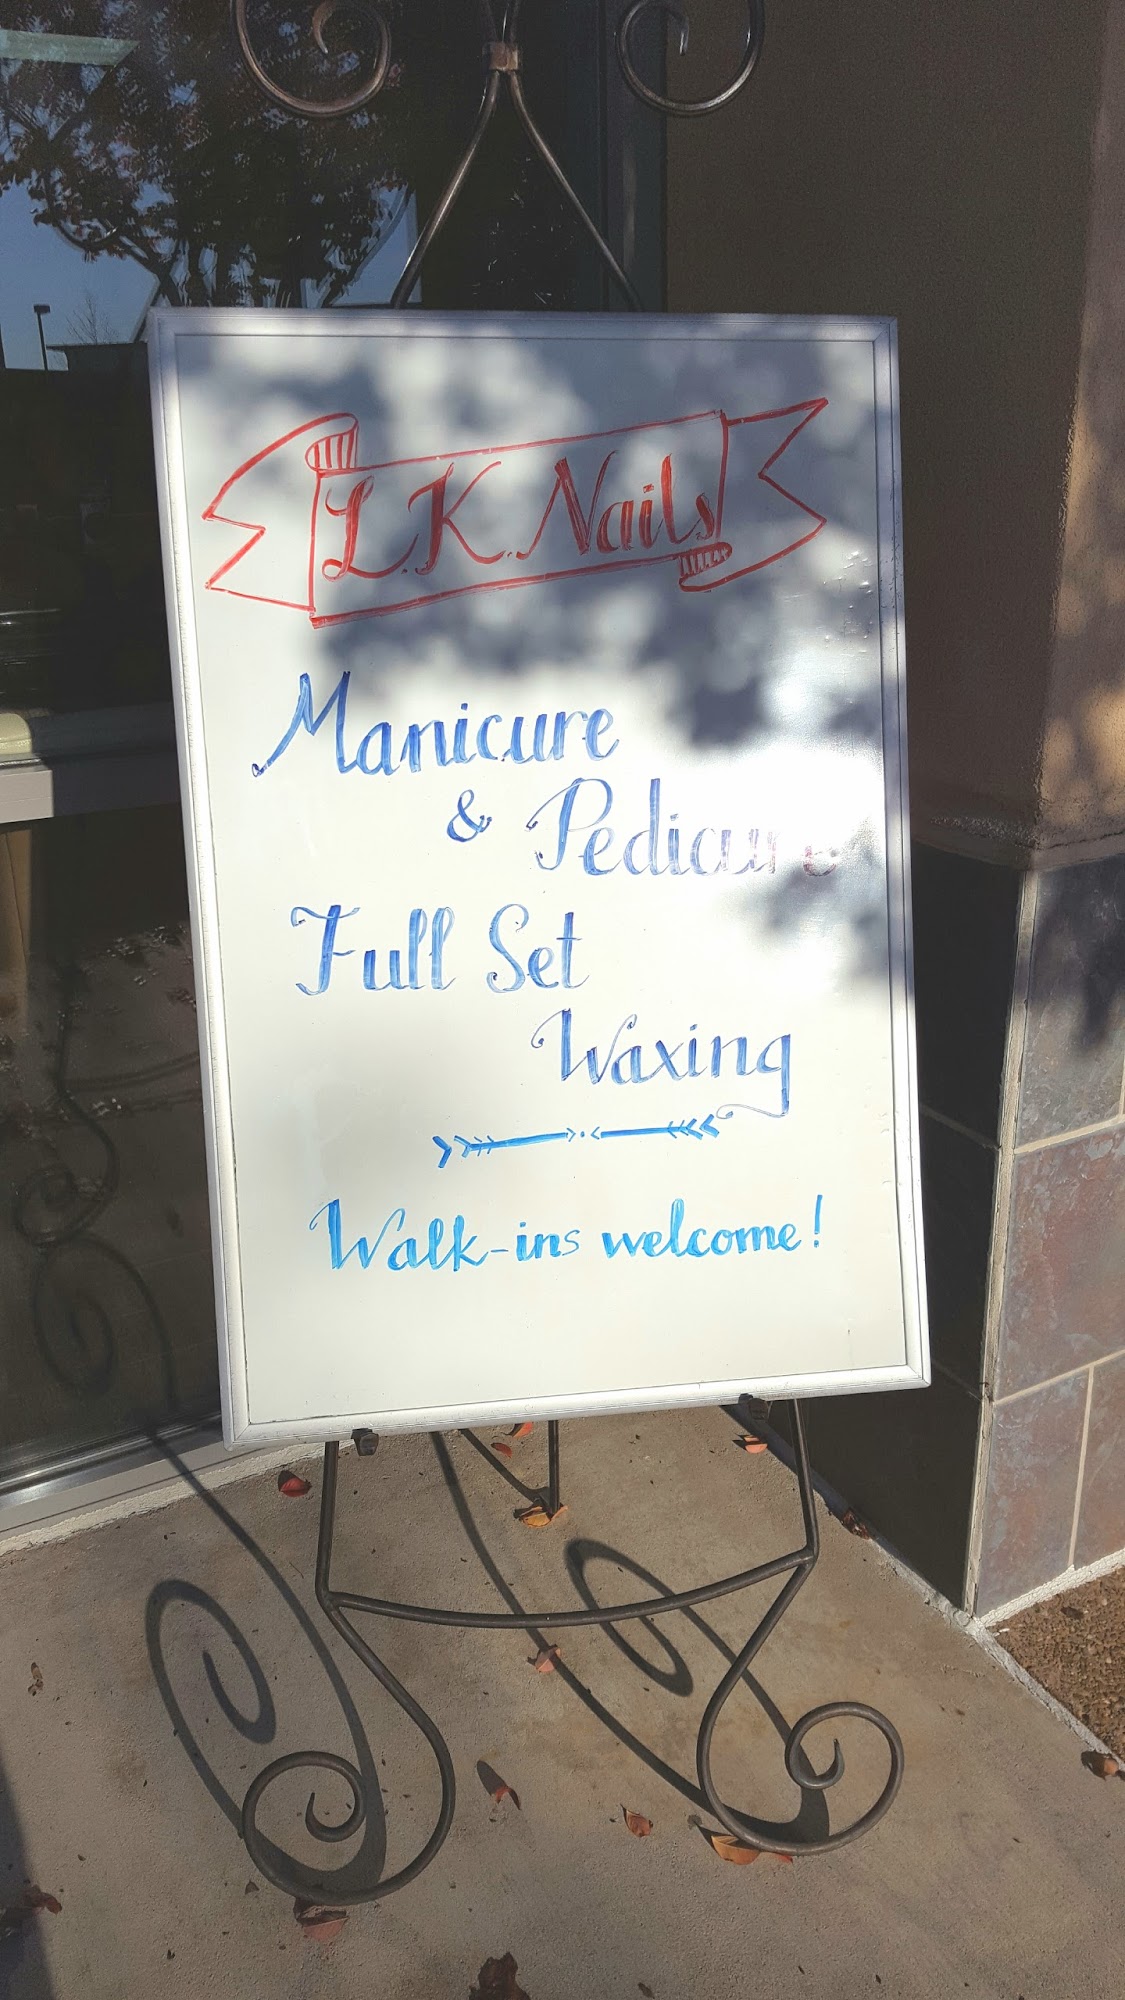 L.K. Nails
Manicure
& Pedicure
Full Set
Waxing
Walk-ins welcome!